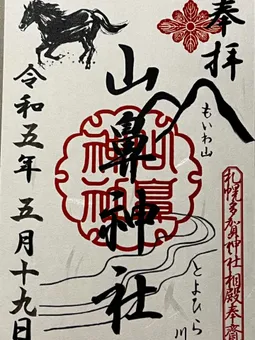 奉拝
もいわ山
札幌多賀神社相殿奉斎
山鼻神社
山鼻神社
とよひら川
令和五年五月十九日